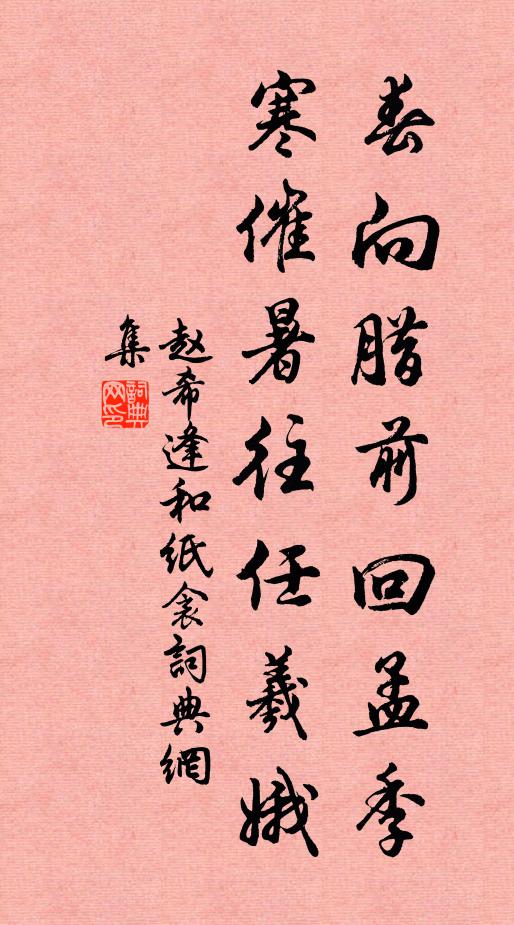 春向腊前回孟季
寒催暑往任羲娥
赵希逢和纸衾詞典網
集
詞典
网印